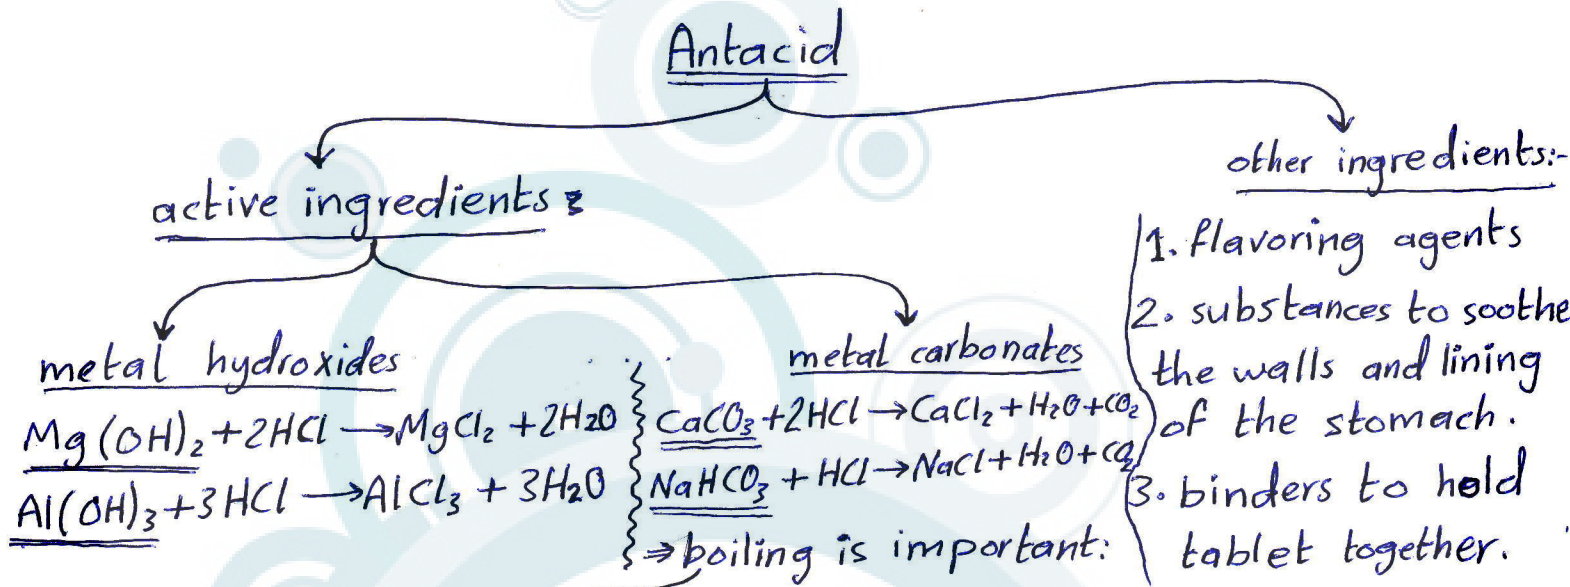 Antacid
active ingredients :
metal hydroxides
Mg(OH)₂ + 2HCl → MgCl₂ + 2H₂O
Al(OH)₃ + 3HCl → AlCl₃ + 3H₂O
metal carbonates
CaCO₃ + 2HCl → CaCl₂ + H₂O + CO₂
NaHCO₃ + HCl → NaCl + H₂O + CO₂
⇒ boiling is important:
other ingredients:-
1. flavoring agents
2. substances to soothe
the walls and lining
of the stomach.
3. binders to hold
tablet together.